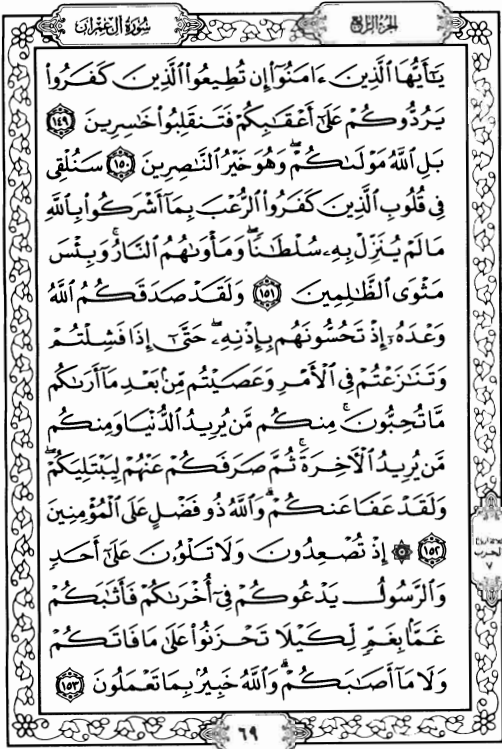 سُورَةُ آلِ عِمْرَان
الجزء الرابع
يَٰٓأَيُّهَا ٱلَّذِينَ ءَامَنُوٓا۟ إِن تُطِيعُوا۟ ٱلَّذِينَ كَفَرُوا۟
يَرُدُّوكُمْ عَلَىٰٓ أَعْقَٰبِكُمْ فَتَنقَلِبُوا۟ خَٰسِرِينَ ١٤٩
بَلِ ٱللَّهُ مَوْلَىٰكُمْ ۖ وَهُوَ خَيْرُ ٱلنَّٰصِرِينَ ١٥٠ سَنُلْقِى
فِى قُلُوبِ ٱلَّذِينَ كَفَرُوا۟ ٱلرُّعْبَ بِمَآ أَشْرَكُوا۟ بِٱللَّهِ
مَا لَمْ يُنَزِّلْ بِهِۦ سُلْطَٰنًا ۖ وَمَأْوَىٰهُمُ ٱلنَّارُ ۚ وَبِئْسَ
مَثْوَى ٱلظَّٰلِمِينَ ١٥١ وَلَقَدْ صَدَقَكُمُ ٱللَّهُ
وَعْدَهُۥٓ إِذْ تَحُسُّونَهُم بِإِذْنِهِۦ ۖ حَتَّىٰٓ إِذَا فَشِلْتُمْ
وَتَنَٰزَعْتُمْ فِى ٱلْأَمْرِ وَعَصَيْتُم مِّنۢ بَعْدِ مَآ أَرَىٰكُم
مَّا تُحِبُّونَ ۚ مِنكُم مَّن يُرِيدُ ٱلدُّنْيَا وَمِنكُم
مَّن يُرِيدُ ٱلْءَاخِرَةَ ۚ ثُمَّ صَرَفَكُمْ عَنْهُمْ لِيَبْتَلِيَكُمْ ۖ
وَلَقَدْ عَفَا عَنكُمْ ۗ وَٱللَّهُ ذُو فَضْلٍ عَلَى ٱلْمُؤْمِنِينَ
١٥٢ ۞ إِذْ تُصْعِدُونَ وَلَا تَلْوُۥنَ عَلَىٰٓ أَحَدٍ
وَٱلرَّسُولُ يَدْعُوكُمْ فِىٓ أُخْرَىٰكُمْ فَأَثَٰبَكُمْ
غَمًّۢا بِغَمٍّ لِّكَيْلَا تَحْزَنُوا۟ عَلَىٰ مَا فَاتَكُمْ
وَلَا مَآ أَصَٰبَكُمْ ۗ وَٱللَّهُ خَبِيرٌۢ بِمَا تَعْمَلُونَ ١٥٣
الحزب
٧
٦٩